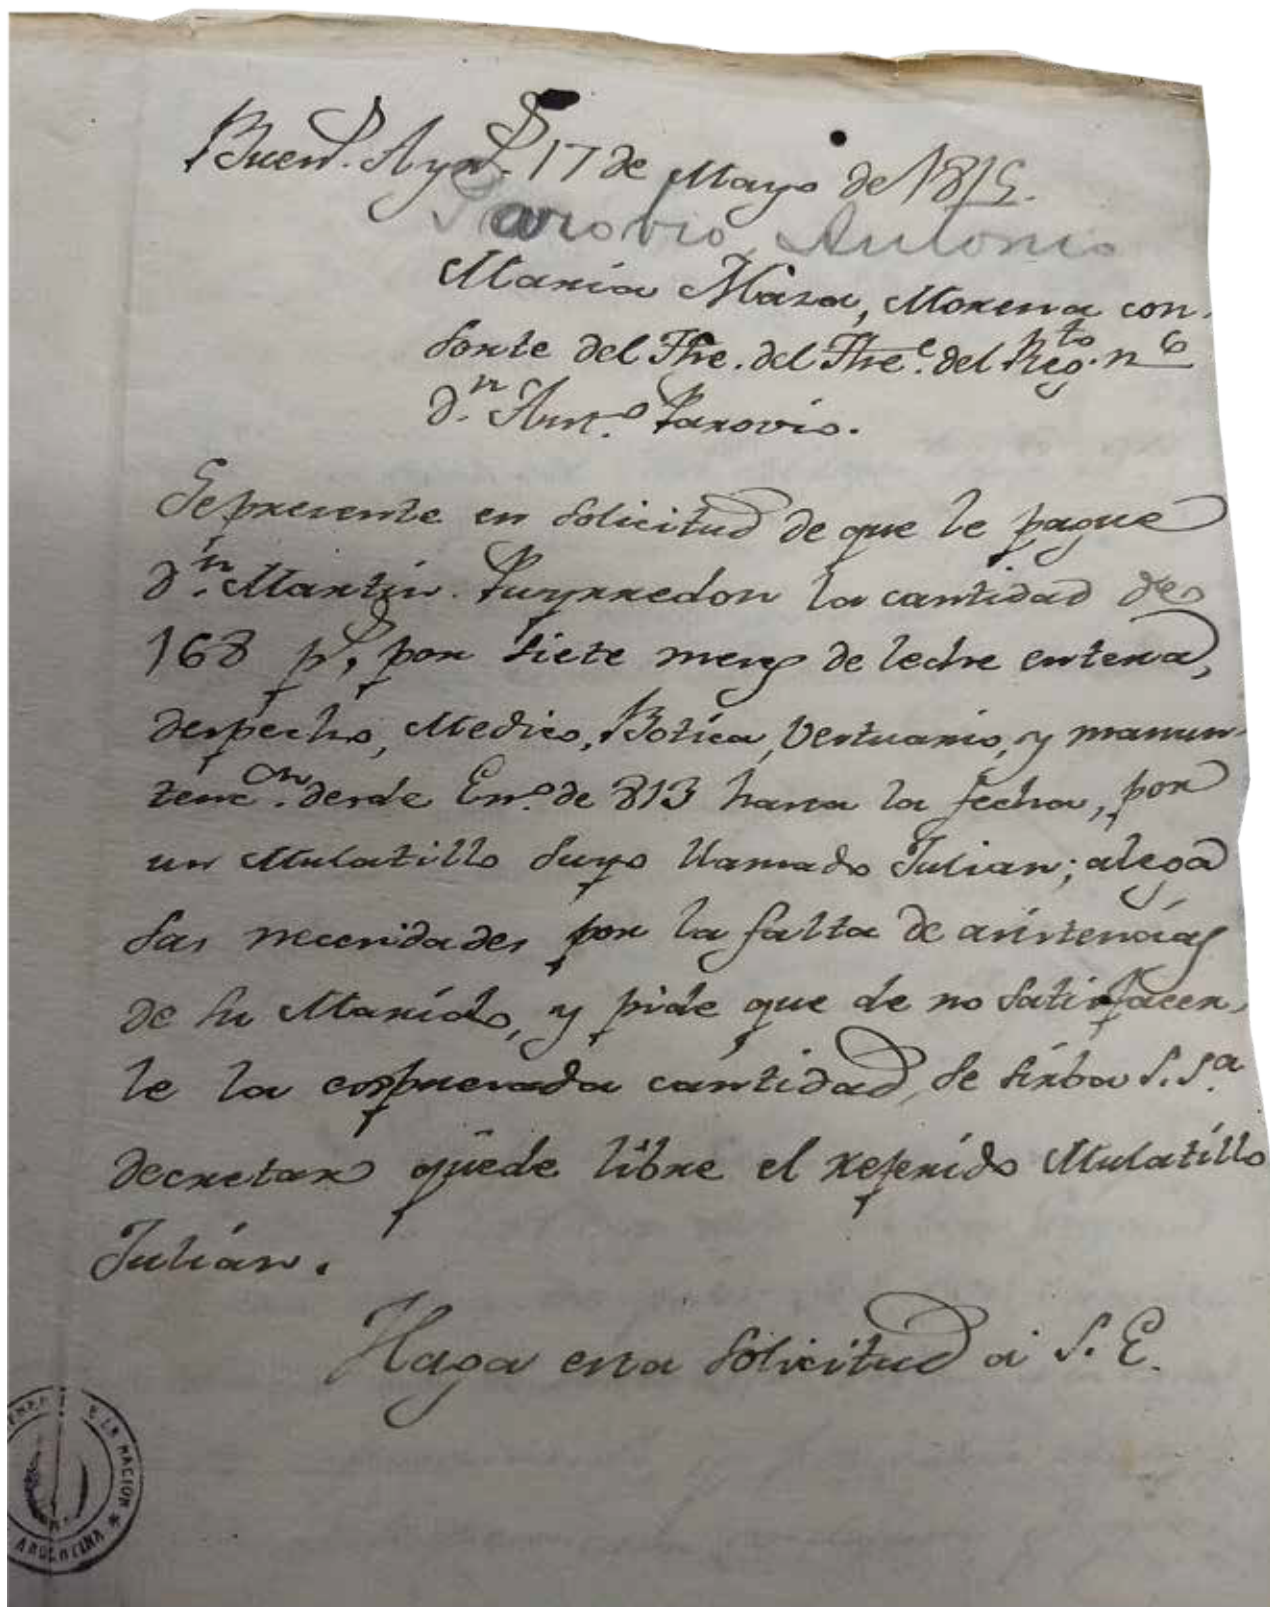 Buen.s Ayr.s 17 de Mayo de 1815.
Parovio, Antonio
María Maza, Morena con
sorte del Thre. del Thre.e del Reg.to n.º 6
d.n Ant.o Parovio.
Sepresente en solicitud de que le pague
d.n Martin Puyrredon la cantidad de
168 p.s por siete mes.s de leche entera,
despecho, Medico, Botica, Vestuario, y manun
tenc.on desde En.o de 813 hasta la fecha, por
un Mulatillo suyo llamado Julian; alega
sus necesidades por la falta de asistencias
de su Marído, y pide que de no satisfacer
le la cantidad, se sirba S.S.a
decretar qüede libre el referído Mulatíllo
Julián.
Haga esta solicitud a S. E.
DE LA NACION * ARGENTINA *